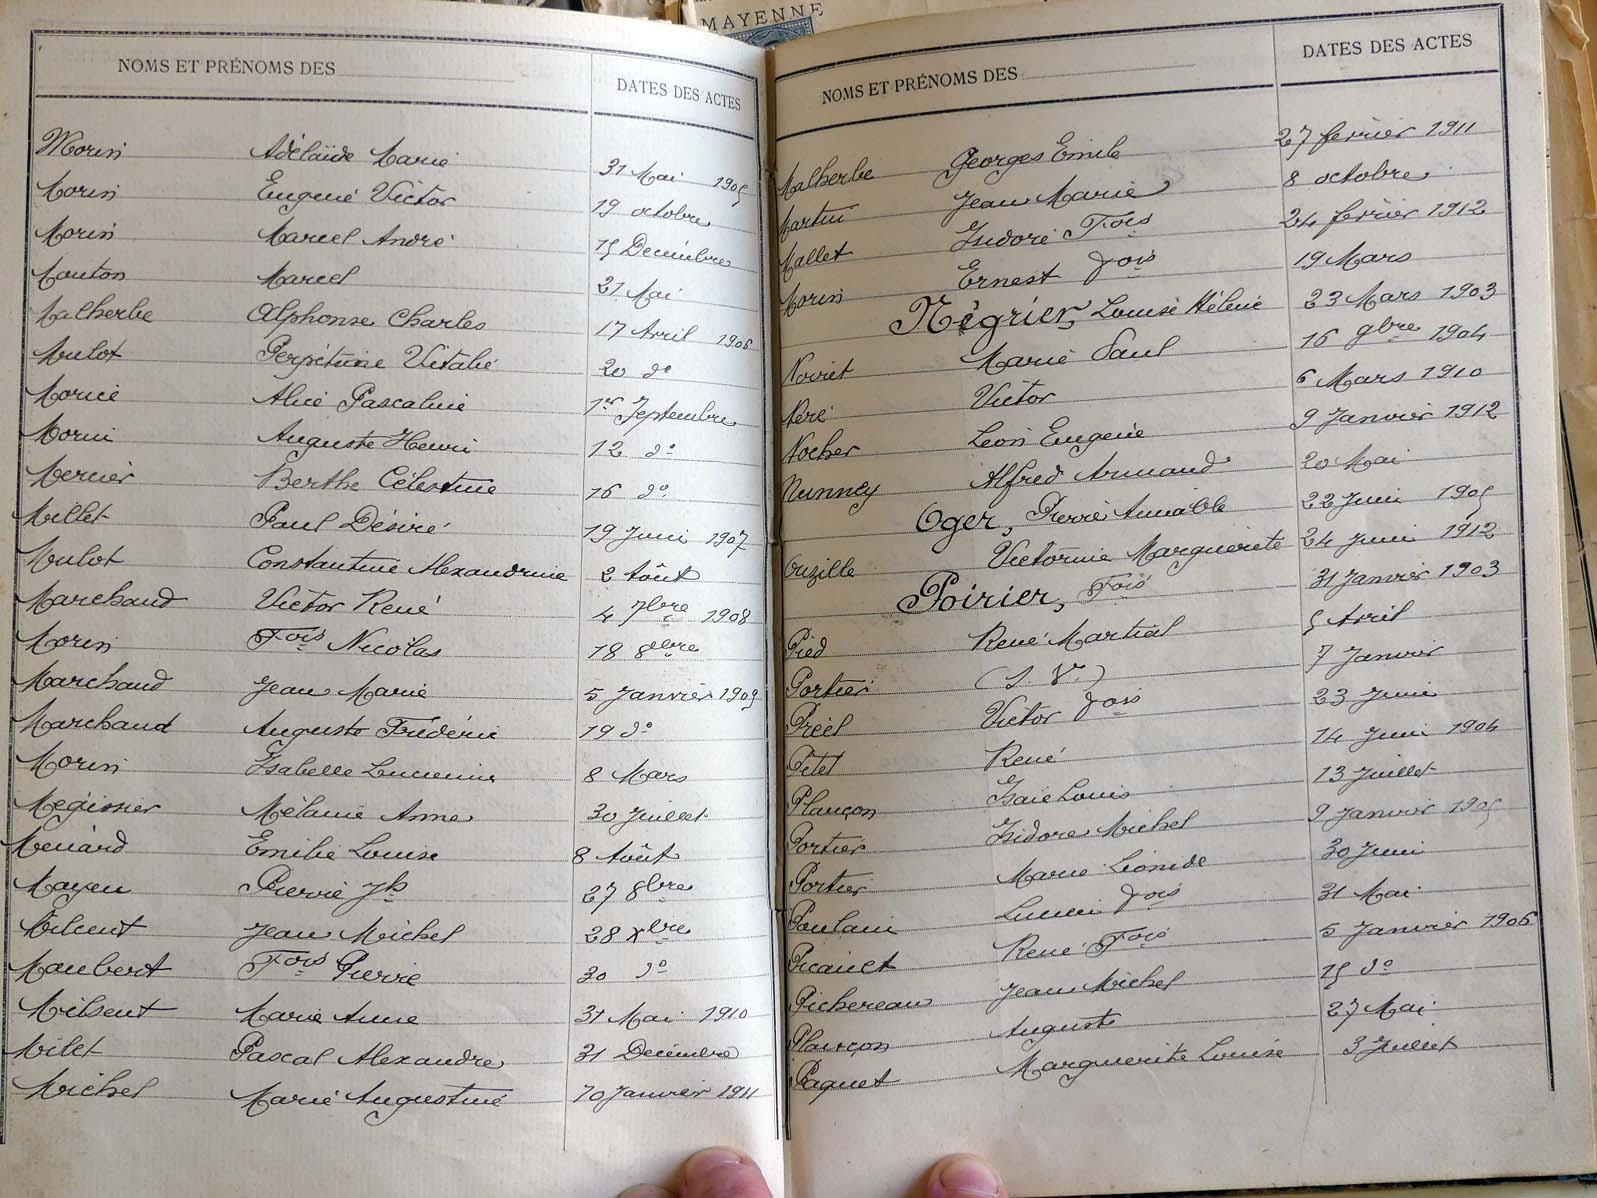 MAYENNE
NOMS ET PRÉNOMS DES DATES DES ACTES
Morin Adélaïde Marie 31 Mai 1905
Morin Eugène Victor 19 octobre
Morin Marcel André 15 Décembre
Mouton Marcel 21 Mai
Malherbe Alphonse Charles 17 Avril 1906
Mulot Perpétuine Vitalie 20 do
Morice Alice Pascaline 1er Septembre
Morin Auguste Henri 12 do
Mercier Berthe Célestine 16 do
Millet Paul Désiré 19 Juin 1907
Mulot Constantine Alexandrine 2 Août
Marchand Victor René 4 7bre 1908
Morin Fois Nicolas 18 8bre
Marchand Jean Marie 5 Janvier 1909
Marchand Auguste Frédéric 19 do
Morin Isabelle Lucienne 8 Mars
Mégissier Mélanie Anne 30 Juillet
Menard Emilie Louise 8 Août
Mayeu Pierre Jh 27 8bre
Milcent Jean Michel 28 Xbre
Maubert Fois Pierre 30 do
Milsent Marie Anne 31 Mai 1910
Milet Pascal Alexandre 31 Décembre
Michel Marie Augustine 10 Janvier 1911
NOMS ET PRÉNOMS DES DATES DES ACTES
Malherbe Georges Emile 27 février 1911
Martin Jean Marie 8 octobre
Mallet Isidore Fois 24 février 1912
Morin Ernest fois 19 Mars
Négrier, Louise Hélène 23 Mars 1903
Noviet Marie Paul 16 9bre 1904
Néré Victor 6 Mars 1910
Nocher Léon Eugène 9 Janvier 1912
Nunney Alfred Armand 20 Mai
Oger, Pierre Aimable 22 Juin 1905
Orizille Victorine Marguerite 24 Juin 1912
Poirier, Fois 31 Janvier 1903
Pied René Martial 5 Avril
Portier (S. Vie) 7 Janvier
Préel Victor fois 23 Juin
Pitet René 14 Juin 1904
Plançon Isaïe Louis 13 Juillet
Portier Isidore Michel 9 Janvier 1905
Portier Marie Léonide 30 Juin
Poulain Lucien fois 31 Mai
Picault René Fois 5 Janvier 1906
Pichereau Jean Michel 15 do
Plançon Auguste 27 Mai
Paquet Marguerite Louise 3 Juillet